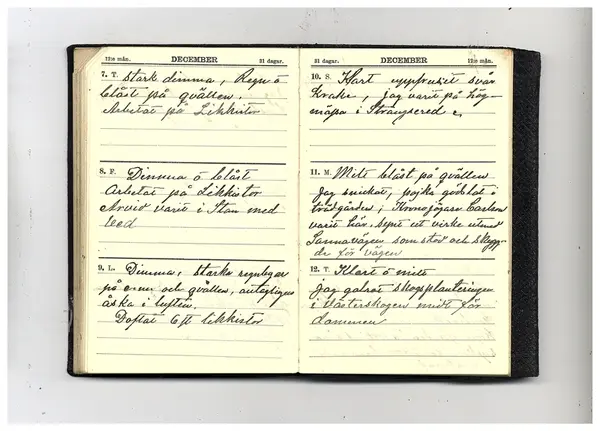 12:e mån. DECEMBER 31 dagar.
7. T. stark dimma, Regn ö
blåst på qvällen.
Arbetat på Likkistor
8. F. Dimma ö blåst
Arbetat på Likkistor
Arvid varit i Stan med
ved
9. L. Dimma, starka regnbyar
på e.m. och qvällen, antagligen
åska i luften.
Doftat 6 st likkistor
31 dagar. DECEMBER 12:e mån.
10. S. Klart uppfruset svår
Krake, jag varit på hög-
mässa i Strängsered
11. M. Mitt blåst på qvällen
jag snickat, pojka gödslat i
trädgården, Kronojägar Carlson
varit här, synt ut virke utmed
Sannavägen som stod och skygg-
de för vägen
12. T. Klart ö mitt
jag galrat skogsplanteringen
i Västerskogen midt för
dammen